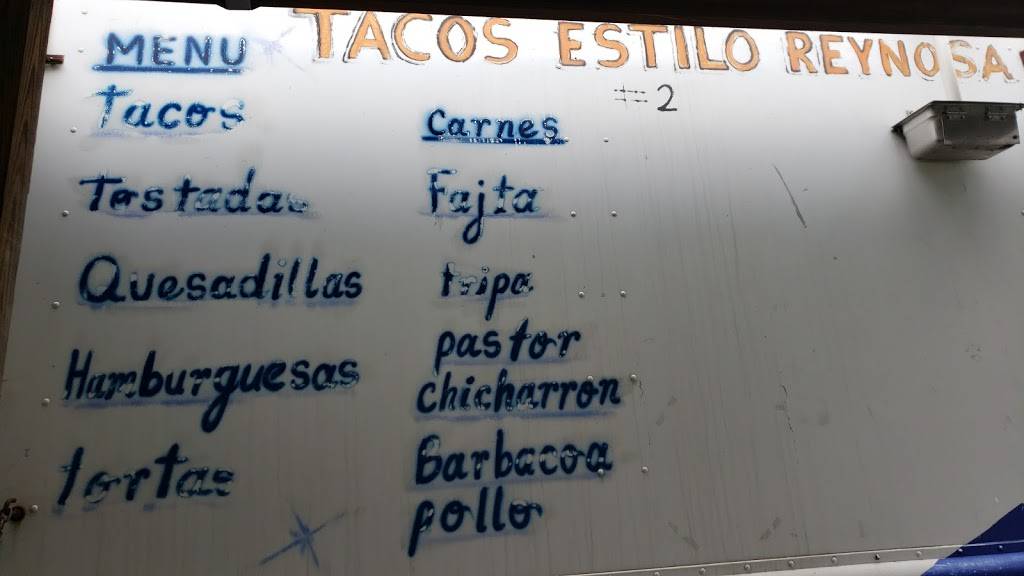 TACOS ESTILO REYNOSA
#2
MENU
Tacos
Tostadas
Quesadillas
Hamburguesas
Tortas
Carnes
Fajta
tripa
pastor
chicharron
Barbacoa
pollo